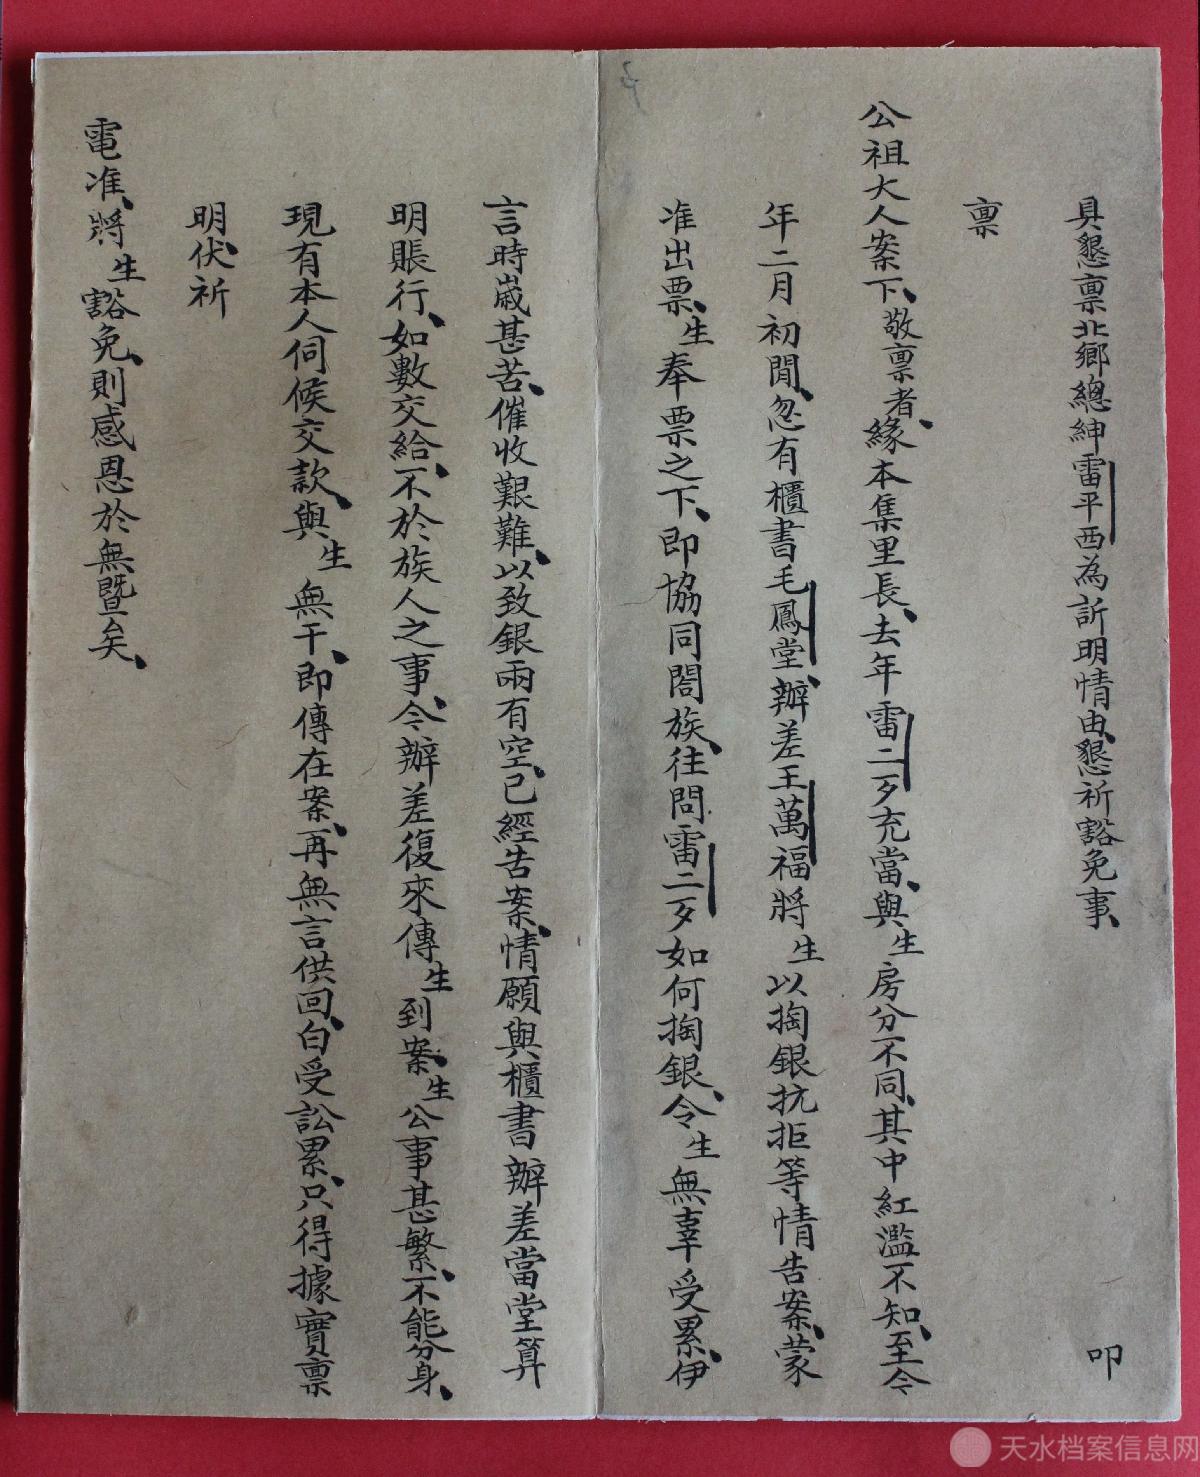 具懇禀北鄉總紳雷平西為訢明情由、懇祈豁免事、 叩
禀
公祖大人案下、敬禀者、緣本集里長、去年雷二歹充當、與生房分不同、其中紅濫不知、至今
年二月初間、忽有櫃書毛鳳堂、辦差王萬福將生以掏銀抗拒等情告案、蒙
准出票、生奉票之下、即協同閤族、往問雷二歹如何掏銀、令生無辜受累、伊
言時嵗甚苦、催收艱難、以致銀兩有空、已經告案、情願與櫃書辦差當堂算
明賬行、如數交給、不於族人之事、今辦差復來傳生到案、生公事甚繁、不能分身、
現有本人伺候交款、與生無干、即傳在案、再無言供回、白受訟累、只得據實禀
明、伏祈
電准、將生豁免、則感恩於無暨矣、
天水档案信息网